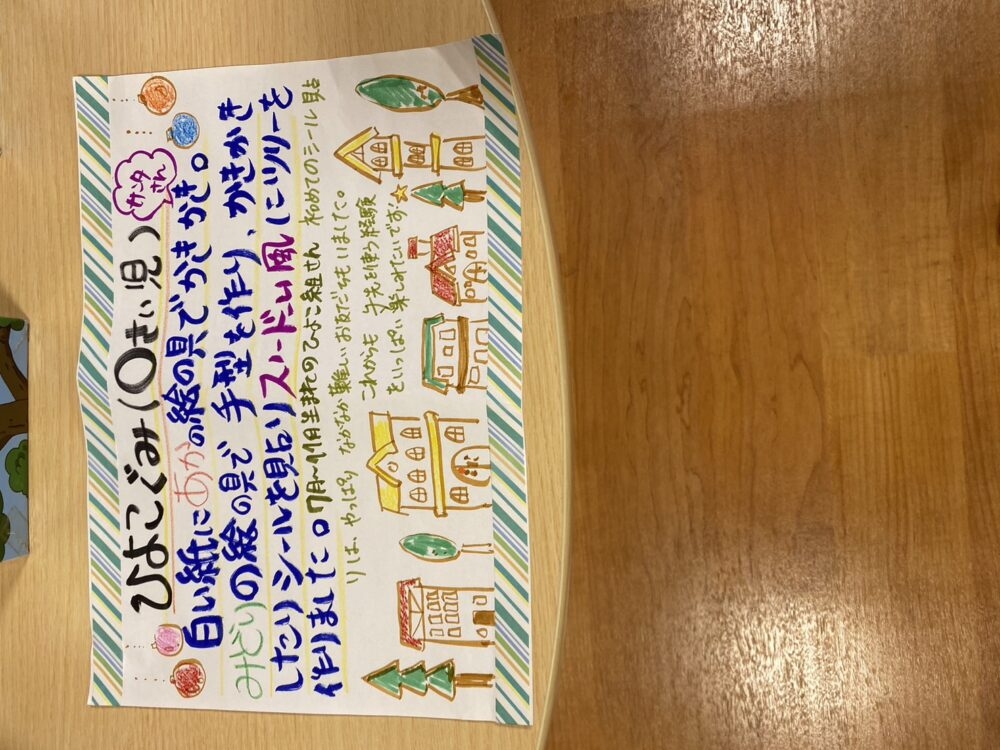 ひよこぐみ(0さい児)
サンタ
さん
白い紙にあかの絵の具でかきかき。
みどりの絵の具で手型を作り、かきかき
したりシールを見占りスノードーム風にツリーを
作りました。7月〜11月生まれのひよこ組さん 初めてのシール見占
りは、やっぱり なかなか難しいお友だちもいました。
これからも 手先を使う経験
をいっぱい 楽しみたいです。